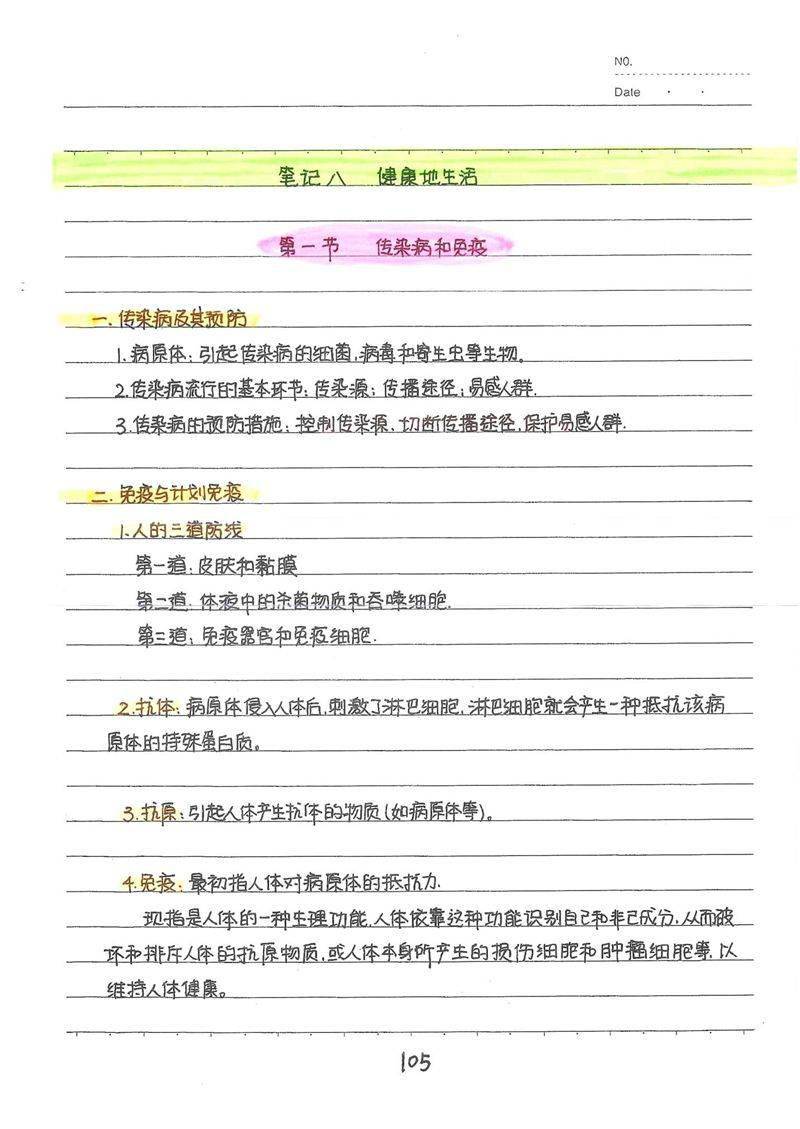 NO.
Date
笔记八 健康地生活
第一节 传染病和免疫
一.传染病及其预防
1.病原体:引起传染病的细菌,病毒和寄生虫等生物。
2.传染病流行的基本环节:传染源;传播途径;易感人群.
3.传染病的预防措施:控制传染源、切断传播途径,保护易感人群.
二.免疫与计划免疫
1.人的三道防线
第一道:皮肤和黏膜
第二道:体液中的杀菌物质和吞噬细胞.
第三道:免疫器官和免疫细胞.
2.抗体:病原体侵入人体后,刺激了淋巴细胞,淋巴细胞就会产生一种抵抗该病
原体的特殊蛋白质。
3.抗原:引起人体产生抗体的物质(如病原体等)。
4.免疫:最初指人体对病原体的抵抗力.
现指是人体的一种生理功能.人体依靠这种功能识别自己和非己成分,从而破
坏和排斥人体的抗原物质,或人体本身所产生的损伤细胞和肿瘤细胞等,以
维持人体健康。
105